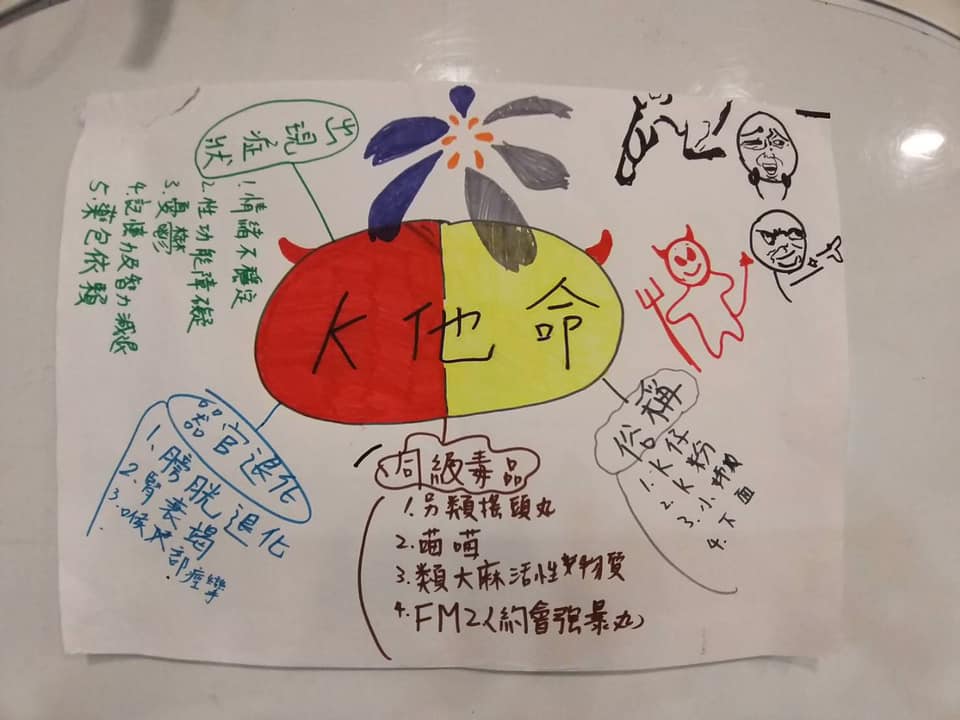 K他命
出現症狀
1.情緒不穩定
2.性功能障礙
3.憂鬱
4.記憶力及智力減退
5.藥包依賴
器官退化
1、膀胱退化
2.腎衰竭
3.喉 部痙攣
同級毒品
1.另類搖頭丸
2.喵喵
3.類大麻活性物質
4.FM2(約會强暴丸)
俗稱
1.K仔
2.K粉
3.小姊
4.下面